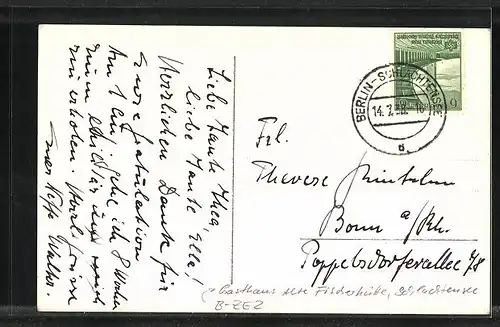 Liebe Tante Thea,
liebe Tante Elle!
Herzlichen Dank für
eure Gratulation
Am 1 Aug. gehe ich 8 Wochen
zum
zu erholen. Viele Grüsse
Euer Neffe Walter.
BERLIN-SCHLACHTENSEE
14.7.
a
6
Frl.
Therese Rintelen
Bonn a/Rh.
Poppelsdorferallee 78
Gasthaus Alte Fischerhütte, Schlachtensee
B-ZEZ